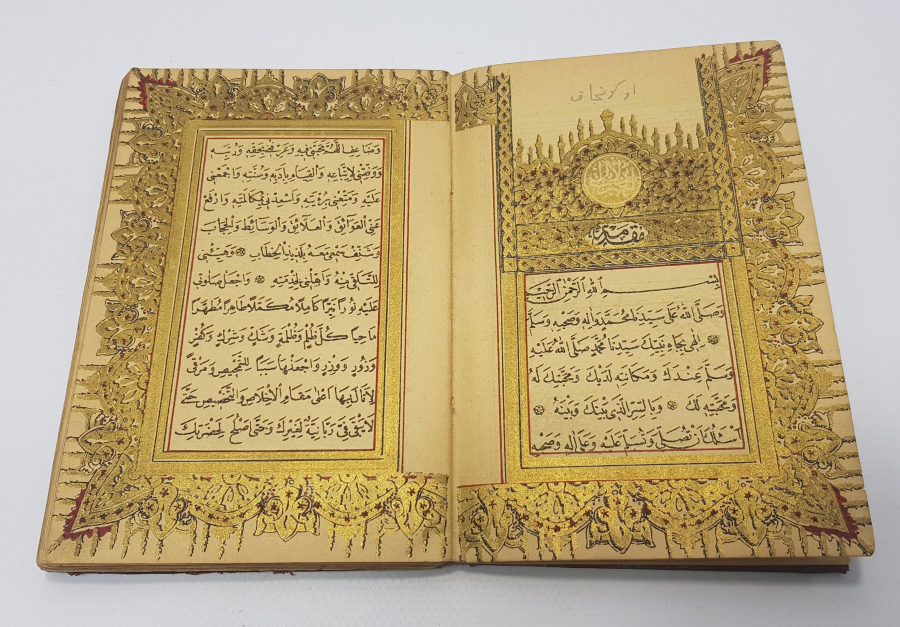 مقدمة
بِسْمِ اللهِ الرَّحْمٰنِ الرَّحِيمِ
وَصَلَّى اللهُ عَلَى سَيِّدِنَا مُحَمَّدٍ وَاٰلِهِ وَصَحْبِهِ وَسَلَّمَ
اِلٰهِي بِجَاهِ نَبِيِّكَ سَيِّدِنَا مُحَمَّدٍ صَلَّى اللهُ عَلَيْهِ
وَسَلَّمَ عِنْدَكَ وَمَكَانَتِهِ لَدَيْكَ وَمَحَبَّتِكَ لَهُ
وَمَحَبَّتِهِ لَكَ ۞ وَبِالسِّرِّ الَّذِي بَيْنَكَ وَبَيْنَهُ ۞
اَسْئَلُكَ اَنْ تُصَلِّيَ وَتُسَلِّمَ عَلَيْهِ وَعَلَى اٰلِهِ وَصَحْبِهِ
وَضَاعِفِ اللّٰهُمَّ مَحَبَّتِي فِيهِ وَعَرِّفْنِي بِحَقِّهِ وَرُتَبِهِ
وَوَفِّقْنِي لِاتِّبَاعِهِ وَالْقِيَامِ بِاَدَبِهِ وَسُنَّتِهِ وَاجْمَعْنِي
عَلَيْهِ وَمَتِّعْنِي بِرُؤْيَتِهِ وَاَسْعِدْنِي بِمُكَالَمَتِهِ وَارْفَعْ
عَنِّي الْعَوَائِقَ وَالْعَلَائِقَ وَالْوَسَائِطَ وَالْحِجَابَ
وَشَنِّفْ سَمْعِي مَعَهُ بِلَذِيذِ الْخِطَابِ ۞ وَهَيِّئْنِي
لِلتَّلَقِّي مِنْهُ وَاَهِّلْنِي لِخِدْمَتِهِ ۞ وَاجْعَلْ صَلٰوتِي
عَلَيْهِ نُورًا نَيِّرًا كَامِلًا مُكَمَّلًا طَاهِرًا مُطَهَّرًا
مَاحِيًا كُلَّ ظُلْمٍ وَظُلْمَةٍ وَشَكٍّ وَشِرْكٍ وَكُفْرٍ
وَزُورٍ وَوِزْرٍ وَاجْعَلْهَا سَبَبًا لِلتَّمْحِيصِ وَمَرْقًى
لِاَنَالَ بِهَا اَعْلَى مَقَامِ الْاِخْلَاصِ وَالتَّخْصِيصِ حَتّٰى
لَا يَبْقٰى فِيَّ رَبَّانِيَّةٌ لِغَيْرِكَ وَحَتّٰى اَصْلُحَ لِحَضْرَتِكَ